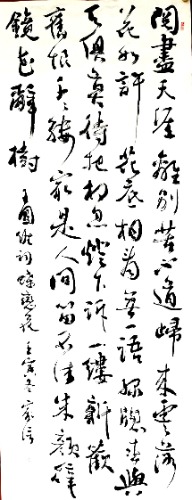 閱盡天涯離別苦不道歸來零落
花如許 花底相看無一語綠窗春與
天俱莫待把相思燈下訴一縷新歡
舊恨千々縷最是人間留不住朱顏辭
鏡花辭樹 王國維詞蝶戀花 壬寅冬